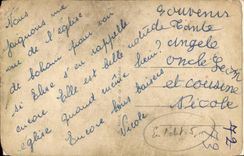 Nous
joignons une
vue de l'église
de Lohan pour voir
si Elise s'en rappelle
encore Elle est belle notre
église quand même hein?
Encore bons baisers
Nicole
Souvenirs
de tante
Angele
oncle
et cousine
Nicole